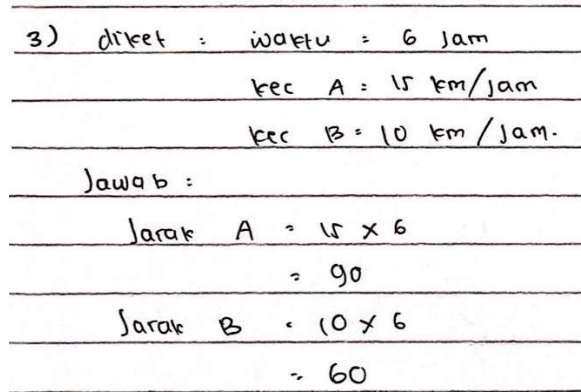 3) diket : waktu = 6 Jam
kec A = 15 km/Jam
kec B = 10 km/Jam.
Jawab :
Jarak A = 15 x 6
= 90
Jarak B = 10 x 6
= 60